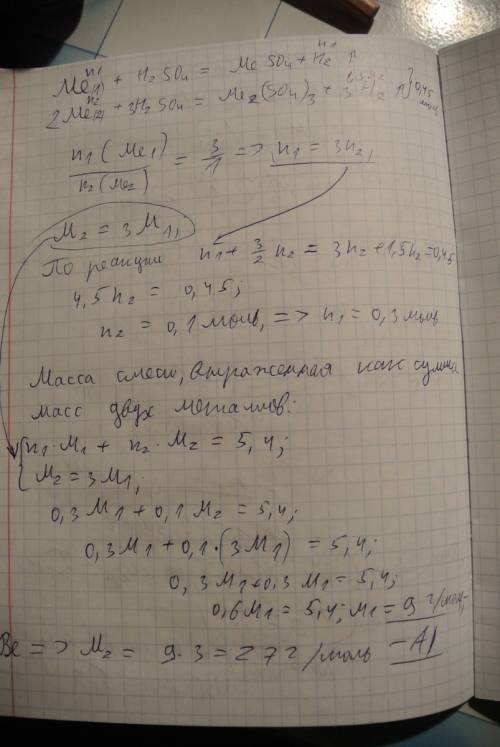 n1
Me(1) + H2SO4 = MeSO4 + H2 ↑
n1
n2
2Me(2) + 3H2SO4 = Me2(SO4)3 + 3H2 ↑ } 0,45 моль
1,5n2
n1(Me1) / n2(Me2) = 3/1 => n1 = 3n2,
M2 = 3M1,
По реакции n1 + 3/2 n2 = 3n2 + 1,5n2 = 0,45
4,5n2 = 0,45;
n2 = 0,1 моль, => n1 = 0,3 моль
Масса смеси, выраженная как сумма
масс двух металлов:
{ n1·M1 + n2·M2 = 5,4;
M2 = 3M1,
0,3M1 + 0,1M2 = 5,4;
0,3M1 + 0,1·(3M1) = 5,4;
0,3M1 + 0,3M1 = 5,4;
0,6M1 = 5,4; M1 = 9 г/моль,
Be => M2 = 9·3 = 27 г/моль – Al